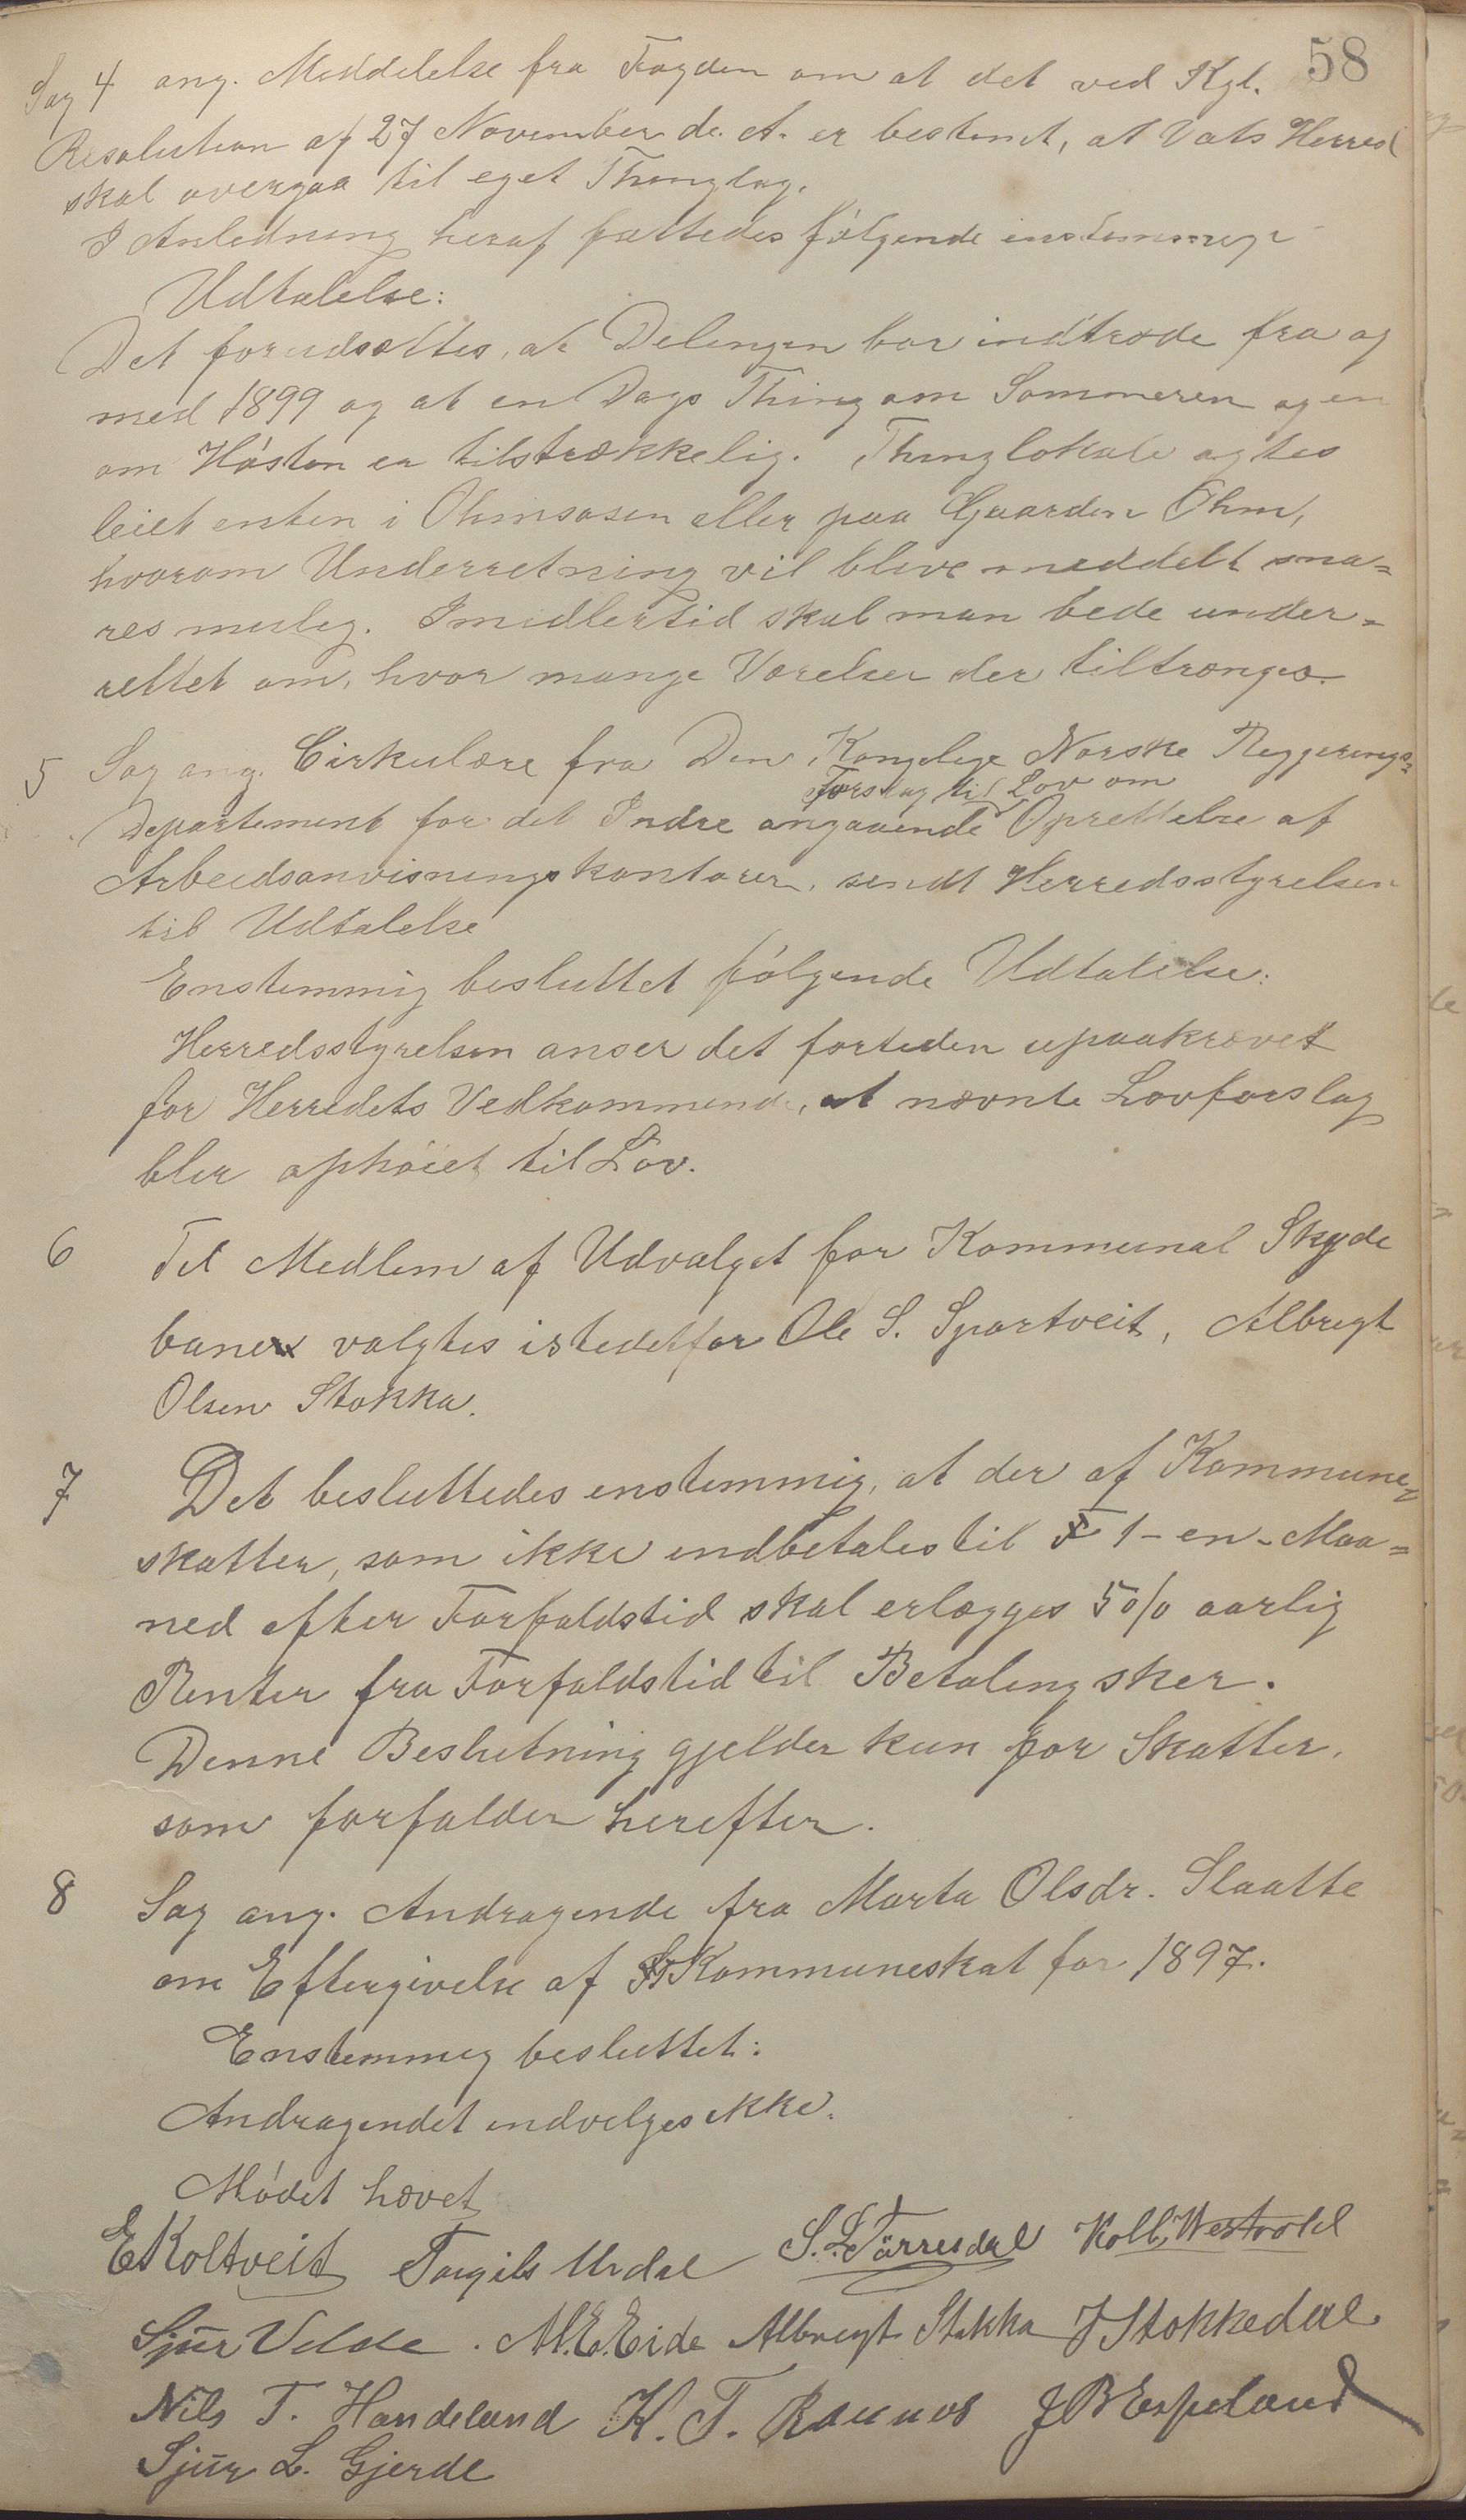 58
Sag 4 ang. Meddelelse fra Fogden om at det ved Kgl.
Resolution af 27 November d. A. er bestemt, at Vats Herred
skal overgaa til eget Thinglag.
I Anledning heraf fattedes følgende enstemmige
Udtalelse:
Det forudsættes, at Delingen bør indtræde fra og
med 1899 og at en Dags Thing om Sommeren og en
om Hósten er tilstrækkelig. Thinglokale agtes
leiet enten i Ølmsosen eller paa Gaarden Ølm,
hvorom Underretning vil blive meddelt sna=
res mulig. Imidlertid skal man bede under=
rettet om, hvor mange Værelser der tiltrænges.
5 Sag ang. Cirkulære fra Den Kongelige Norske Reggerings=
Forslag til Lov om
Departement for det Indre angaaende Oprettelse af
Arbeidsanvisningskontorer, sendt Herredsstyrelsen
til Udtalelse
Enstemmig besluttet fólgende Udtalelse:
Herredsstyrelsen anser det fortiden upaakrævet
for Herredets Vedkommende, at nævnte Lovforslag
blir ophóiet til Lov.
6 Til Medlem af Udvalget for Kommunal Skyde
baner valgtes istedetfor Ole S. Spartveit, Albregt
Olsen Stokka.
7 Det besluttedes enstemmig, at der af Kommune=
skatter, som ikke indbetales til 1-en-Maa=
ned efter Forfaldstid skal erlægges 5% aarlig
Renter fra Forfaldstid til Betaling sker.
Denne Beslutning gjelder kun for Skatter,
som forfalder herefter.
8 Sag ang. Andragende fra Marta Olsdr. Slaatte
om Eftergivelse af Kommuneskat for 1897.
Enstemmig besluttet:
Andragendet indvelges ikke.
Módet hævet
E Koltveit Torgils Urdal S. L. Törresdal Kolb. Westvold
Sjur Velde. M.E.Eide Albregt Stokka J Stokkedal
Nils T. Handeland K. T. Raunes J B Espeland
Sjur L. Gjerde